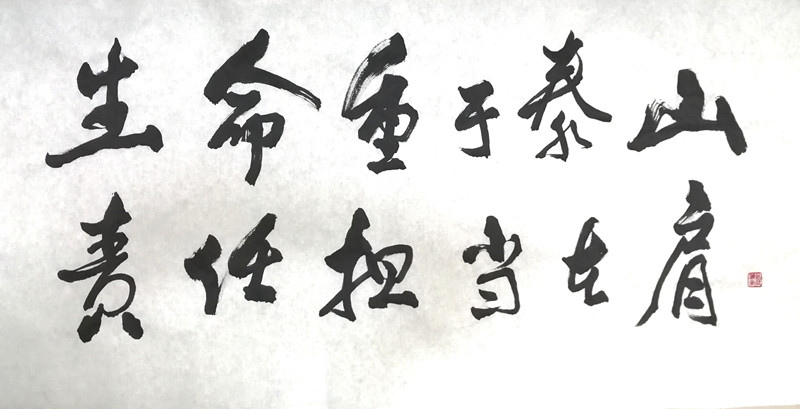 生命重于泰山
责任担当在肩